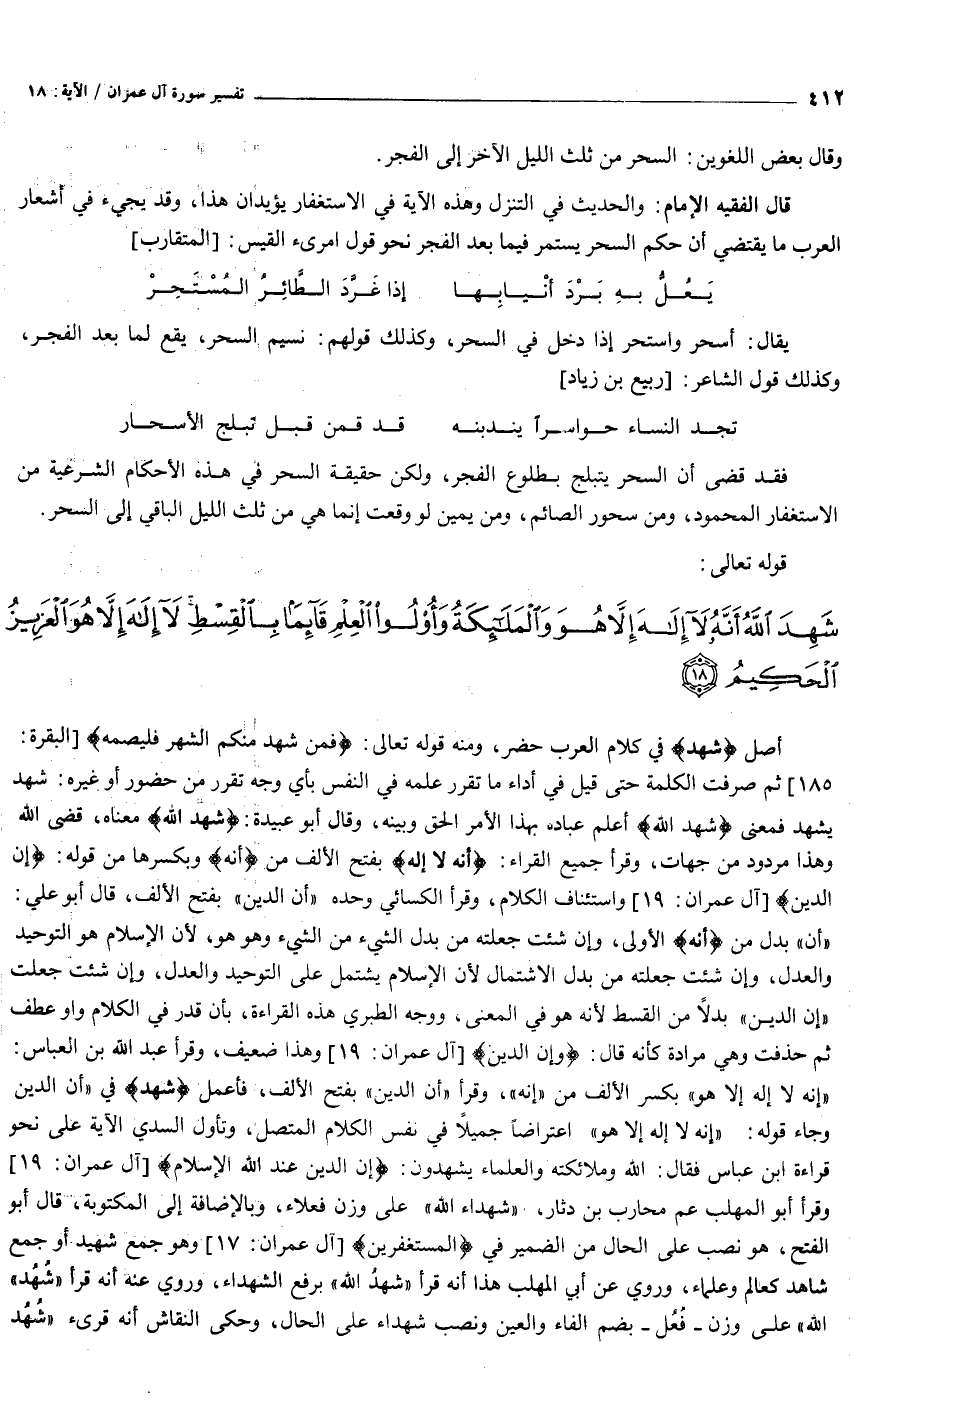 ٤١٢ تفسير سورة آل عمران / الآية: ١٨
وقال بعض اللغوين: السحر من ثلث الليل الآخر إلى الفجر.
قال الفقيه الإمام: والحديث في التنزل وهذه الآية في الاستغفار يؤيدان هذا، وقد يجيء في أشعار
العرب ما يقتضي أن حكم السحر يستمر فيما بعد الفجر نحو قول امرىء القيس: [المتقارب]
يَـعُـلُّ بـهِ بَـرْدَ أنْـيـابِـهـا إذا غَـرَّدَ الـطَّائِـرُ الـمُـسْـتَـحِـرْ
يقال: أسحر واستحر إذا دخل في السحر، وكذلك قولهم: نسيم السحر، يقع لما بعد الفجر،
وكذلك قول الشاعر: [ربيع بن زياد]
تجـد النسـاء حـواسـراً ينـدبنـه قـد قـمن قـبـل تبلـج الأسـحـار
فقـد قضى أن السحر يتبلج بـطلوع الفجر، ولكن حقيقـة السحر في هـذه الأحكام الشـرعية من
الاستغفار المحمود، ومن سحور الصائم، ومن يمين لو وقعت إنما هي من ثلث الليل الباقي إلى السحر.
قوله تعالى:
شَهِدَ ٱللَّهُ أَنَّهُ لَآ إِلَٰهَ إِلَّا هُوَ وَٱلْمَلَٰٓئِكَةُ وَأُو۟لُوا۟ ٱلْعِلْمِ قَآئِمًۢا بِٱلْقِسْطِ لَآ إِلَٰهَ إِلَّا هُوَ ٱلْعَزِيزُ
ٱلْحَكِيمُ ١٨
أصل ﴿شهد﴾ في كلام العرب حضر، ومنه قوله تعالى: ﴿فمن شهد منكم الشهر فليصمه﴾ [البقرة:
١٨٥] ثم صرفت الكلمة حتى قيل في أداء ما تقرر علمه في النفس بأي وجه تقرر من حضور أو غيره: شهد
يشهد فمعنى ﴿شهد الله﴾ أعلم عباده بهذا الأمر الحق وبينه، وقال أبو عبيدة: ﴿شهد الله﴾ معناه، قضى الله
وهذا مردود من جهات، وقرأ جميع القراء: ﴿أنه لا إله﴾ بفتح الألف من ﴿أنه﴾ وبكسرها من قوله: ﴿إن
الدين﴾ [آل عمران: ١٩] واستئناف الكلام، وقرأ الكسائي وحده «أن الدين» بفتح الألف، قال أبو علي:
«أن» بدل من ﴿أنه﴾ الأولى، وإن شئت جعلته من بدل الشيء من الشيء وهو هو، لأن الإسلام هو التوحيد
والعدل، وإن شئت جعلته من بدل الاشتمال لأن الإسلام يشتمل على التوحيد والعدل، وإن شئت جعلت
«إن الديـن» بدلاً من القسط لأنه هو في المعنى، ووجه الطبري هذه القراءة، بأن قدر في الكلام واو عطف
ثم حذفت وهي مرادة كأنه قال: ﴿وإن الدين﴾ [آل عمران: ١٩] وهذا ضعيف، وقرأ عبد الله بن العباس:
«إنه لا إله إلا هو» بكسر الألف من «إنه»، وقرأ «أن الدين» بفتح الألف، فأعمل ﴿شهد﴾ في «أن الدين
وجاء قوله: «إنه لا إله إلا هو» اعتراضاً جميلاً في نفس الكلام المتصل، وتأول السدي الآية على نحو
قراءة ابن عباس فقال: الله وملائكته والعلماء يشهدون: ﴿إن الدين عند الله الإسلام﴾ [آل عمران: ١٩]
وقرأ أبو المهلب عم محارب بن دثار، «شهداء الله» على وزن فعلاء، وبالإضافة إلى المكتوبة، قال أبو
الفتح، هو نصب على الحال من الضمير في ﴿المستغفرين﴾ [آل عمران: ١٧] وهو جمع شهيد أو جمع
شاهد كعالم وعلماء، وروي عن أبي المهلب هذا أنه قرأ «شهدُ الله» برفع الشهداء، وروي عنه أنه قرأ «شُهُد»
الله» علـى وزن ـ فُعُل ـ بضم الفاء والعين ونصب شهداء على الحال، وحكى النقاش أنه قرىء «شُهُد